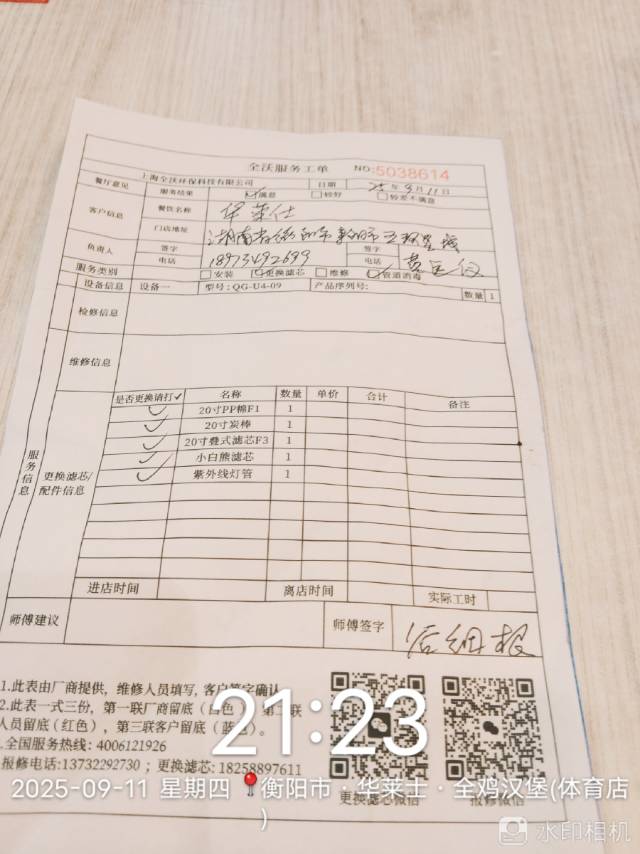 全沃服务工单 NO:5038614
上海全沃环保科技有限公司 日期 25年9月11日
餐厅意见 服务结果 满意 较好 较差不满意
客户信息 餐饮名称 华莱仕
门店地址 湖南省衡阳市
负责人 签字 签字
电话 18973492699 电话
服务类别 安装 ✓更换滤芯 维修 ✓管道消毒
设备信息 设备一 型号: QG-U4-09 产品序列号: 数量 1
检修信息
维修信息
服务信息
更换滤芯/配件信息
是否更换请打✓ 名称 数量 单价 合计 备注
✓ 20寸PP棉F1 1
✓ 20寸炭棒 1
✓ 20寸叠式滤芯F3 1
✓ 小白熊滤芯 1
✓ 紫外线灯管 1
进店时间 离店时间 实际工时
师傅建议 师傅签字
1.此表由厂商提供, 维修人员填写, 客户签字确认
2.此表一式三份, 第一联厂商留底(白色), 第二联
人员留底(红色), 第三联客户留底(蓝色)
.全国服务热线: 4006121926
报修电话:13732292730 ; 更换滤芯: 18258897611
更换滤芯微信 报修微信
21:23
2025-09-11 星期四 衡阳市·华莱士·全鸡汉堡(体育店
)
水印相机